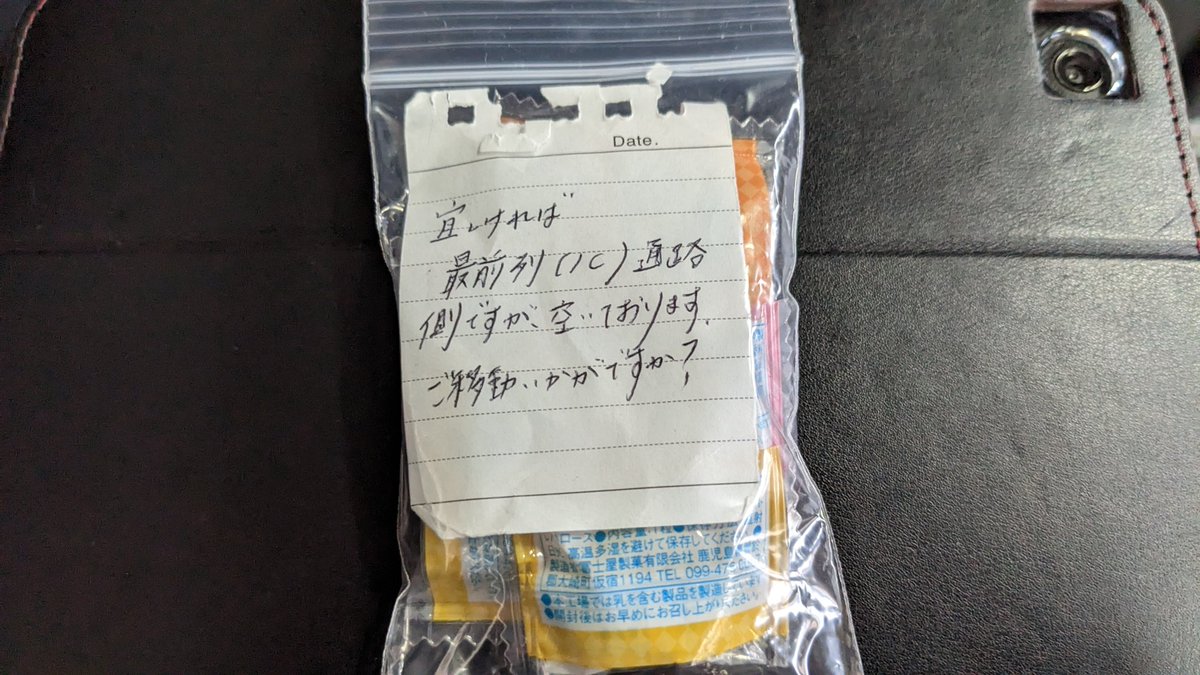 Date.
宜しければ
最前列(1C)通路
側ですが、空いております。
ご移動いかがですか?
高温多湿を避けて保存してくだ
富士屋製菓有限会社 鹿児島
町仮宿1194 TEL 099-47
場では乳を含む製品を製造して
●開封後はお早めにお召し上がりください。